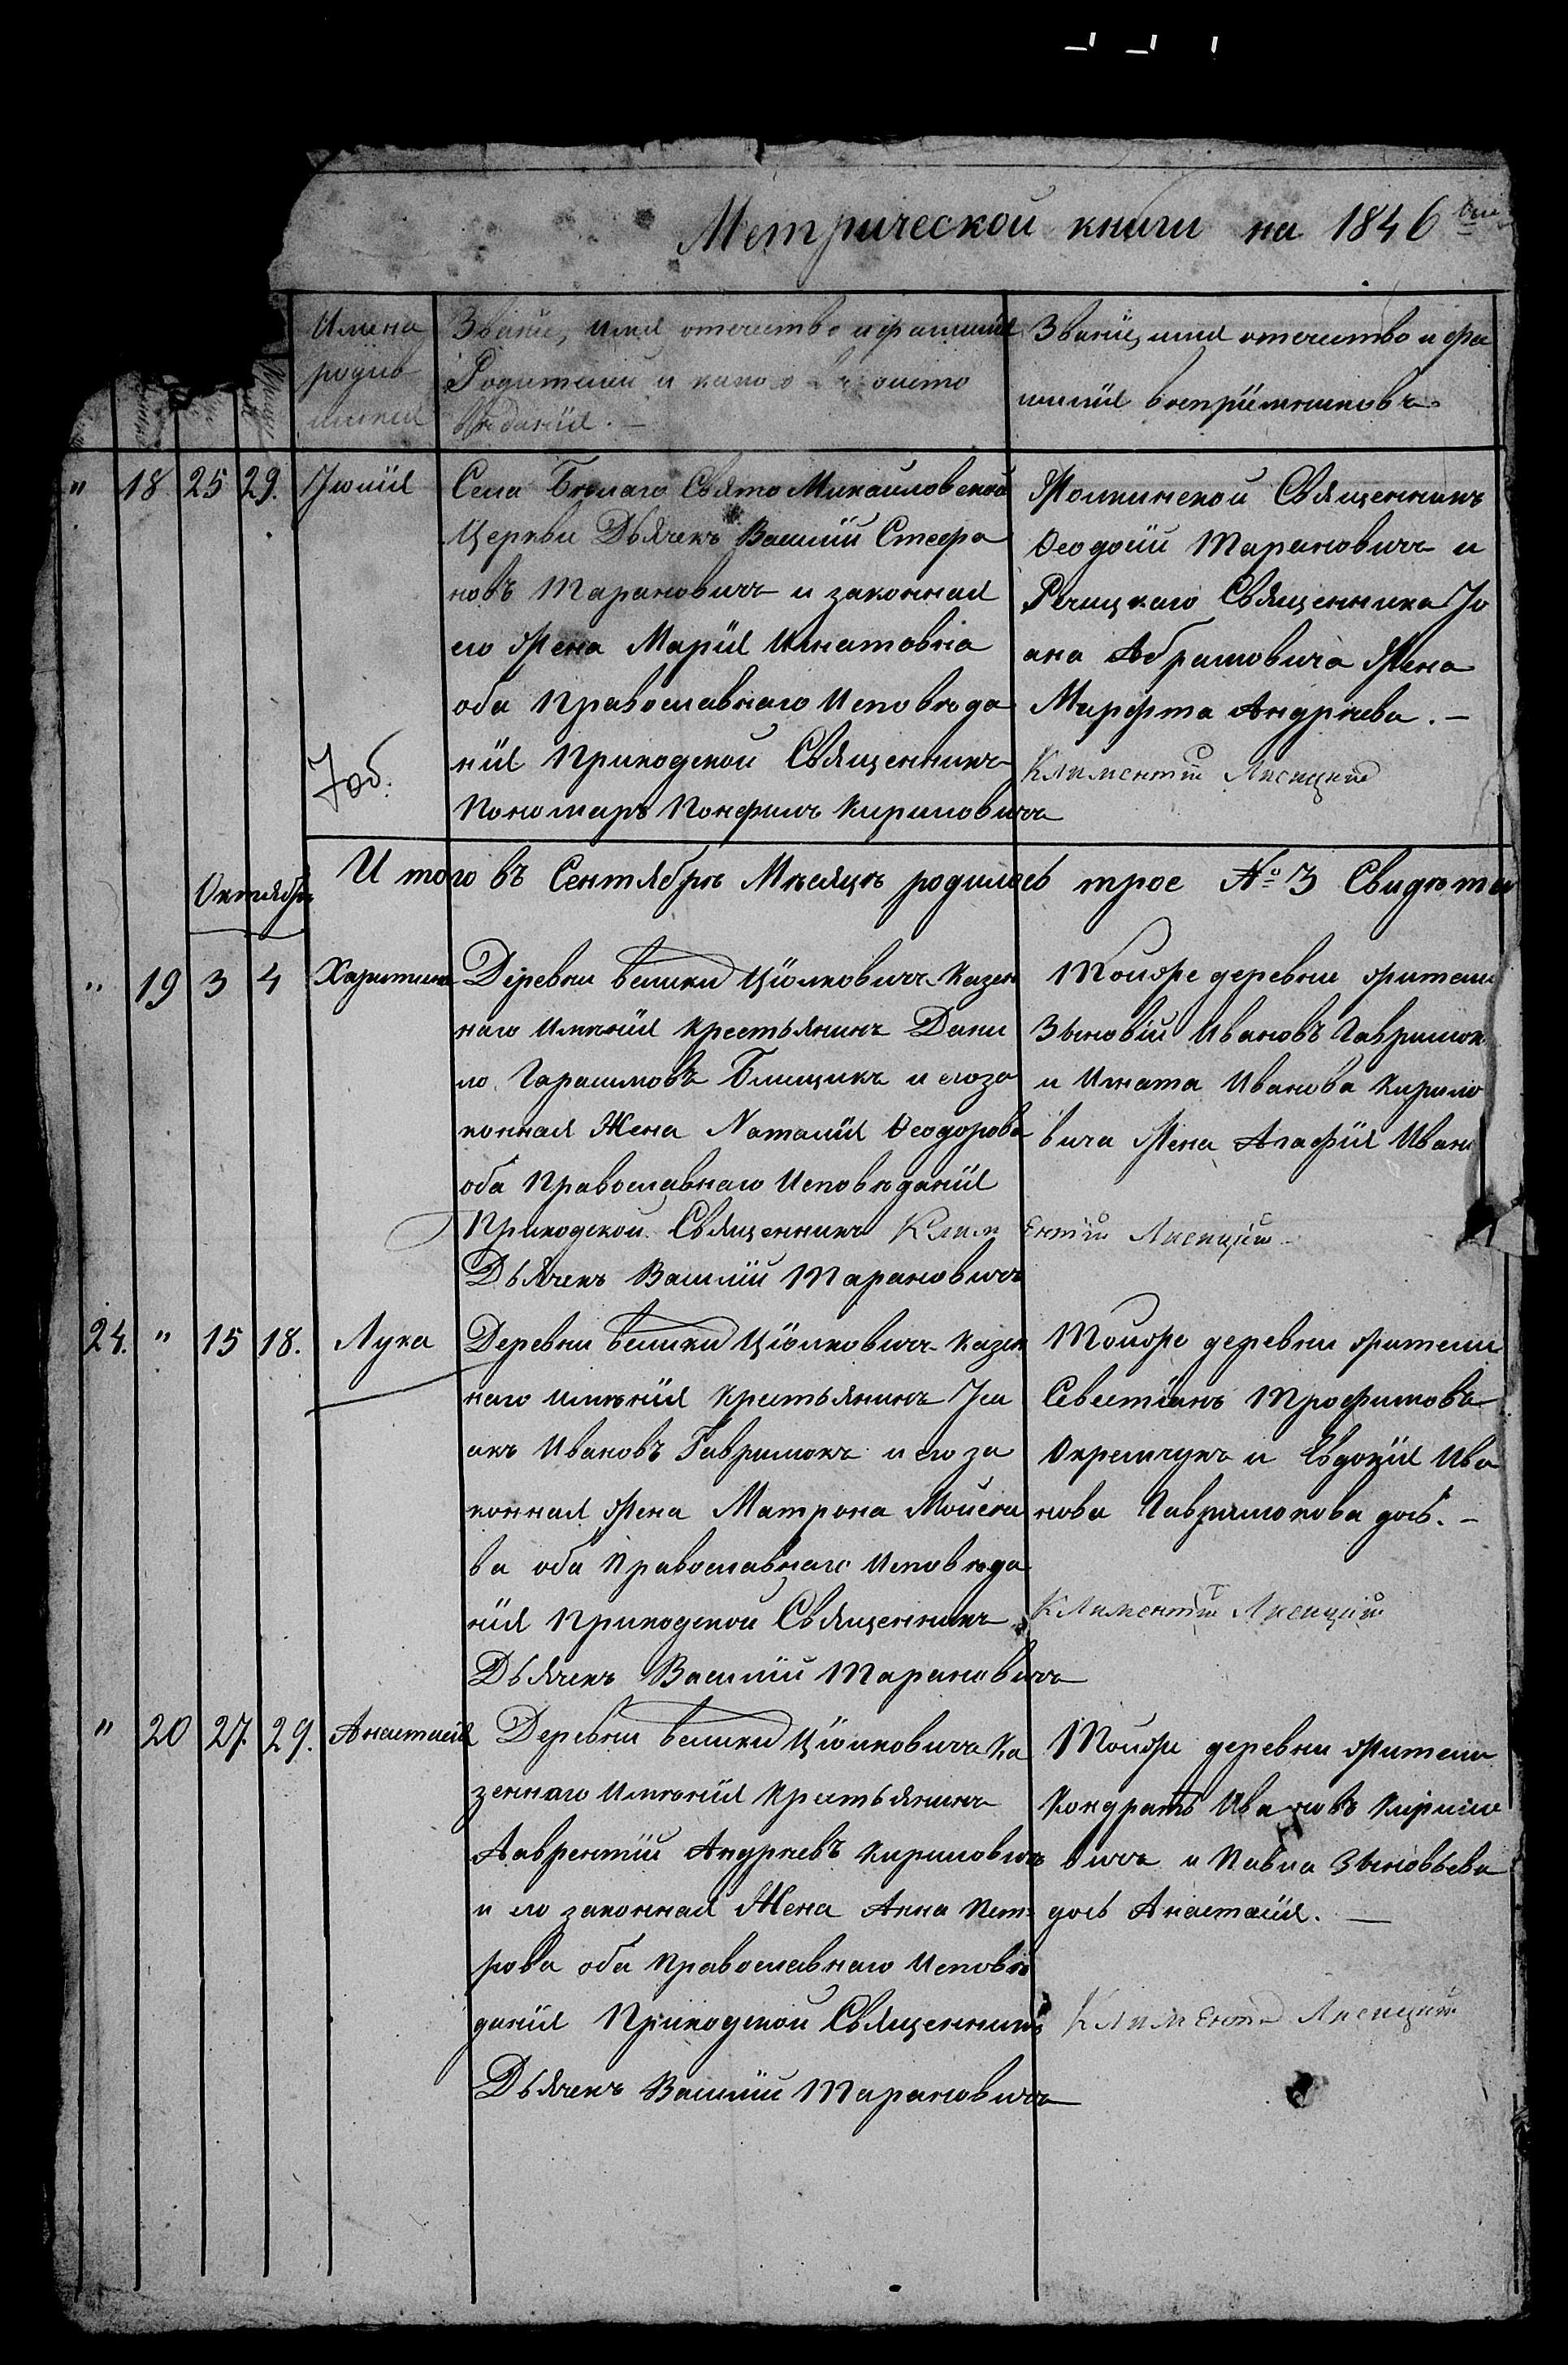 Метрической книги на 1846 Годъ
Имена родив шихся
Званіе, имя отчество и фамилія
Родителей и какого
вѣданія. —
Званіе, имя отчество и фа
милія воспріемниковъ
" 18 25 29. Іюлія
Села Бѣлаго Свято Михайловской
Церкви Дьячекъ Василій Стефа
новъ Тарановичъ и законная
его жена Марія Игнатовна
оба православнаго Исповѣда
нія Приходской Священникъ
Пономарь Понфилъ Кириловичъ
Священникъ
Ѳеодосій Тарановичъ и
Рѣчицкаго Священника Іо
ана Абрамовича жена
Марфта Андрѣева. —
Климентій Лисицкій
И того въ Сентябрѣ Мѣсяцѣ родилось трое № 3 Свидѣте
Октябрь
" 19 3 4 Харитина
Деревни велики Цѣолковичъ Казен
наго Имѣнія крестьянинъ Дани
ло Гарасимовъ Блищикъ и его за
конная Жена Наталія Ѳеодорова
оба Православнаго Исповѣданія
Приходской Священникъ Климентій Лисицкій
Дьячекъ Василій Тарановичъ
Тойже деревни жители
Зѣновій Ивановъ Гаврилюк
и Игната Иванова Кирило
вича жена Агафія Иван
24. " 15 18. Лука
Деревни велики Цѣолковичъ казен
наго имѣнія крестьянинъ Іса
акъ Ивановъ Гаврилюкъ и его за
конная жена Матрона Мойсеи
ва оба православнаго Исповѣда
нія Приходской Священникъ
Дьячекъ Василій Тарановичъ
Тойже деревни жители
Севестіанъ Трофимовъ
Охремчукъ и Евдокія Ива
нова Гаврилюкова дочь. —
Климентій Лисицкій
" 20 27. 29. Анастасія
Деревни велики Цѣолковичъ Ка
зеннаго Имѣнія Крестьянинъ
Лаврентій Андрѣевъ Кириловичъ
и его законная Жена Анна Пет-
рова оба православнаго Исповѣ
данія Приходской Священникъ
Дьячекъ Василій Тарановичъ
Тойже деревни жители
Кондратъ Ивановъ Кирило
вичъ и Павла Зѣновьева
дочь Анастасія. —
Климентій Лисицкій